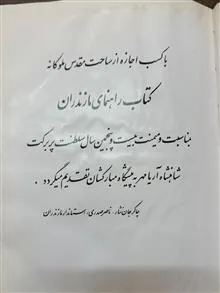 باکسب اجازه از ساحت مقدس ملوکانه
کتاب راهنمای مازندران
بمناسبت و میمنت بیست و پنجمین سال سلطنت پر برکت
شاهنشاه آریامهر به پیشگاه مبارکشان تقدیم میگردد.
چاکر جان نثار، ناصر صدری، استاندار مازندران